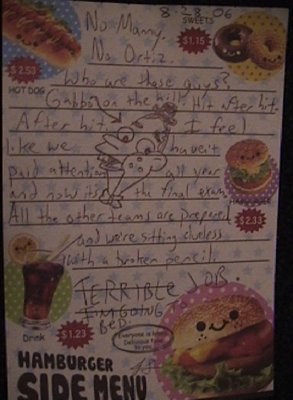 8-28-06
No Manny.
SWEETS
No Ortiz.
$1.15
$2.53
Who are those guys?
HOT DOG
Gabbolon the hill. Hit after hit.
After hit. I feel
like we haven't
paid attention all year
and now its the final exam.
HAMBURGER
$2.33
All the other teams are prepared
and we're sitting clueless
with a broken pencil.
TERRIBLE JOB
I'M GOING
BED
Drink
$1.23
Everyone is
Delicious Food
HAMBURGER
SIDE MENU